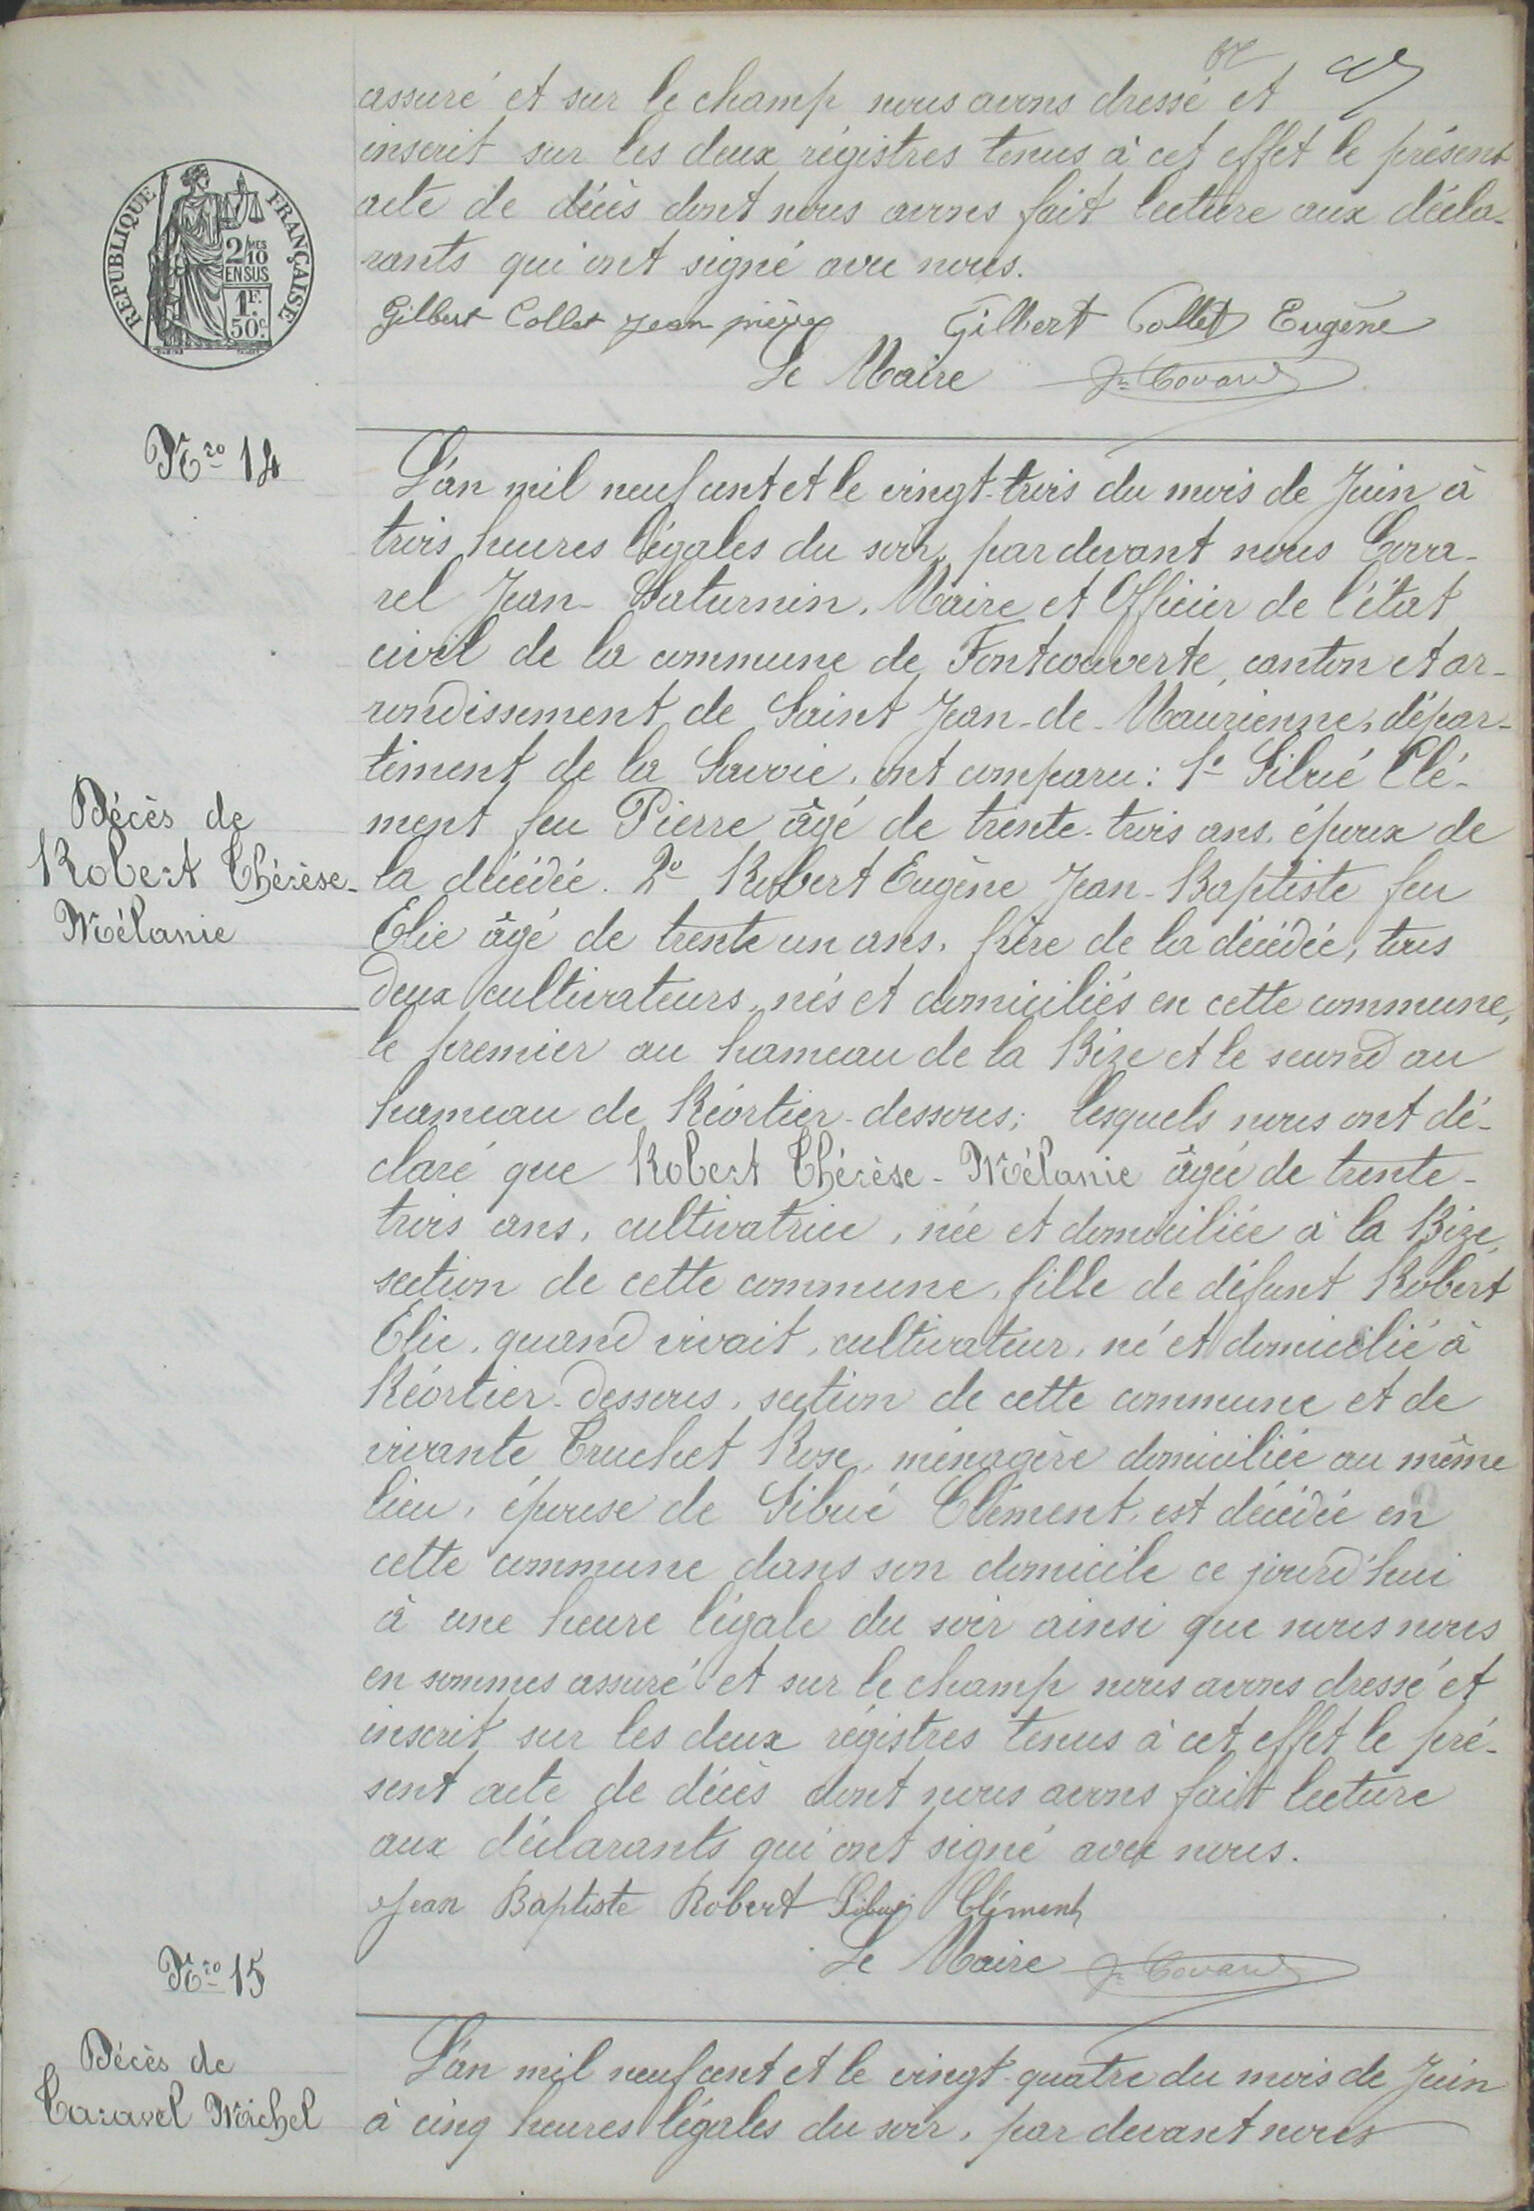 assuré et sur le champ nous avons dressé et
inscrit sur les deux régistres tenus à cet effet le présent
acte de décès dont nous avons fait lecture aux décla-
rants qui ont signé avec nous.
Gilbert Collet Jean pierre Gilbert Collet Eugène
Le Maire
REPUBLIQUE FRANÇAISE
2/10 MES
EN SUS
1F.
50c
Nro 14
L'an mil neuf cent et le vingt-trois du mois de Juin à
trois heures légales du soir, par devant nous Cova-
rel Jean-Saturnin, Maire et Officier de l'état
civil de la commune de Fontcouverte, canton et ar-
rondissement de Saint Jean-de-Maurienne, dépar-
tement de la Savoie, ont comparu: 1º Sibué Clé-
ment feu Pierre âgé de trente-trois ans, époux de
Décès de
Robert Thérèse-
Mélanie
la décédée. 2º Robert Eugène Jean-Baptiste feu
Elie âgé de trente un ans, frère de la décédée, tous
deux cultivateurs, nés et domiciliés en cette commune,
le premier au hameau de la Bize et le second au
hameau de Réortier-dessous; lesquels nous ont dé-
claré que Robert Thérèse-Mélanie âgée de trente-
trois ans, cultivatrice, née et domiciliée à la Bize,
section de cette commune, fille de défunt Robert
Elie, quand vivait, cultivateur, né et domicilié à
Réortier-dessous, section de cette commune et de
vivante Truchet Rose, ménagère domiciliée au même
lieu, épouse de Sibué Clément, est décédée en
cette commune dans son domicile ce jourd'hui
à une heure légale du soir ainsi que nous nous
en sommes assuré et sur le champ nous avons dressé et
inscrit sur les deux régistres tenus à cet effet le pré-
sent acte de décès dont nous avons fait lecture
aux déclarants qui ont signé avec nous.
Jean Baptiste Robert Sibué Clément
Le Maire
Nro 15
Décès de
Taravel Michel
L'an mil neuf cent et le vingt-quatre du mois de Juin
à cinq heures légales du soir, par devant nous